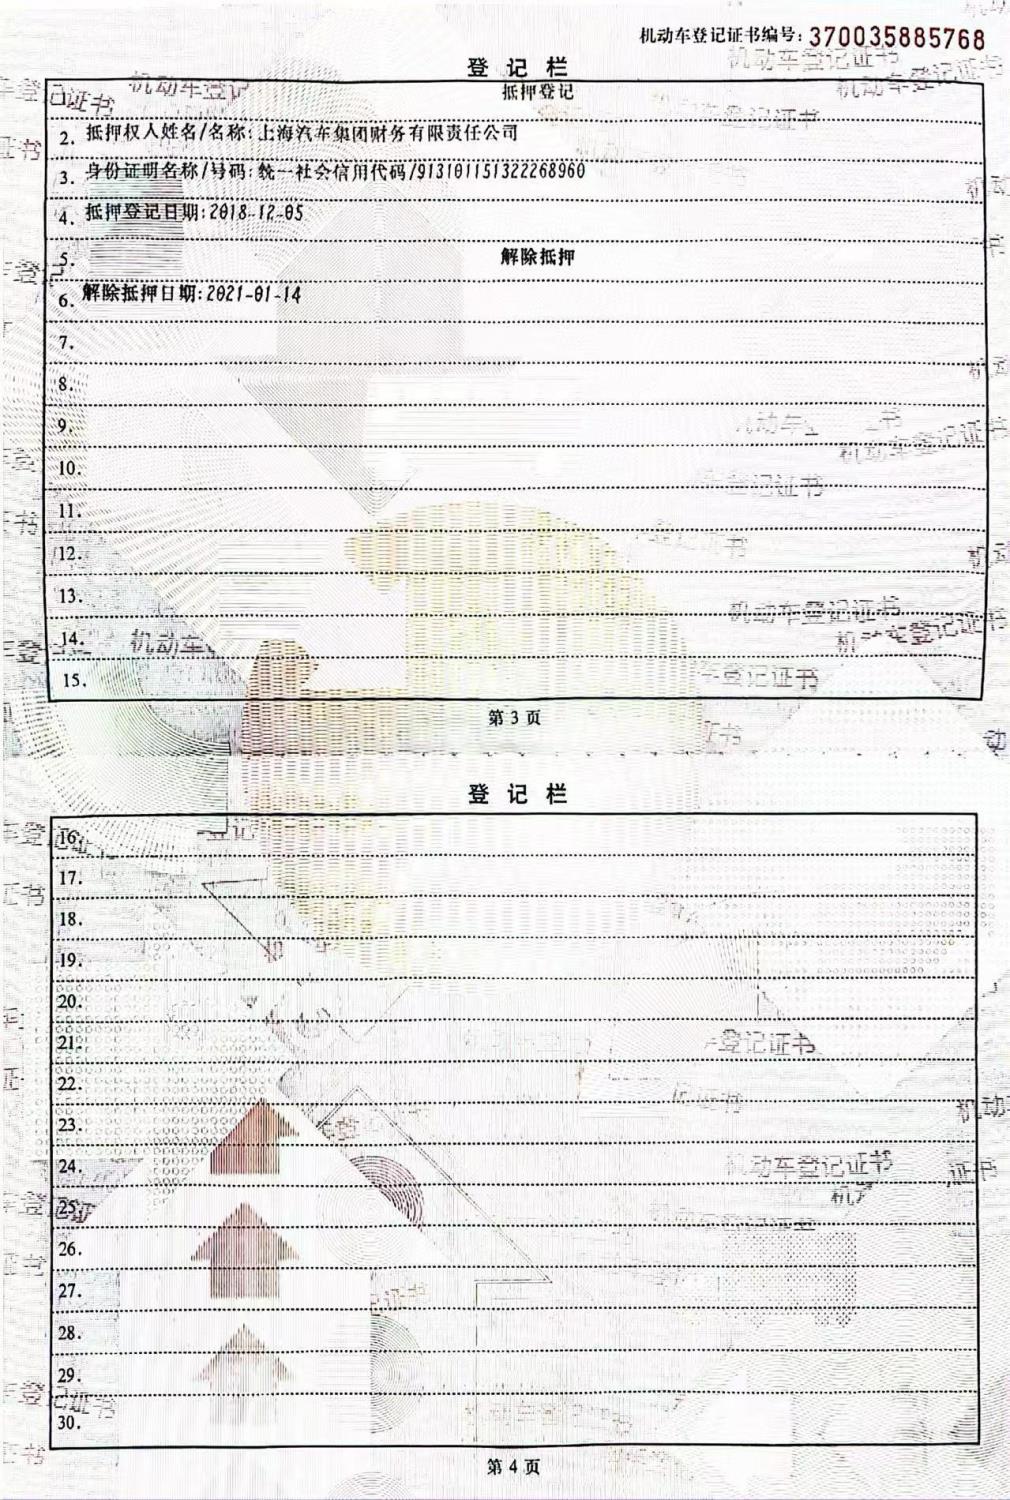 机动车登记证书编号:370035885768
登记栏
1. 抵押登记
2. 抵押权人姓名/名称:上海汽车集团财务有限责任公司
3. 身份证明名称/号码:统一社会信用代码/913101151322268960
4. 抵押登记日期:2018-12-05
5. 解除抵押
6. 解除抵押日期:2021-01-14
7.
8.
9.
10.
11.
12.
13.
14.
15.
第3页
登记栏
16.
17.
18.
19.
20.
21.
22.
23.
24.
25.
26.
27.
28.
29.
30.
第4页